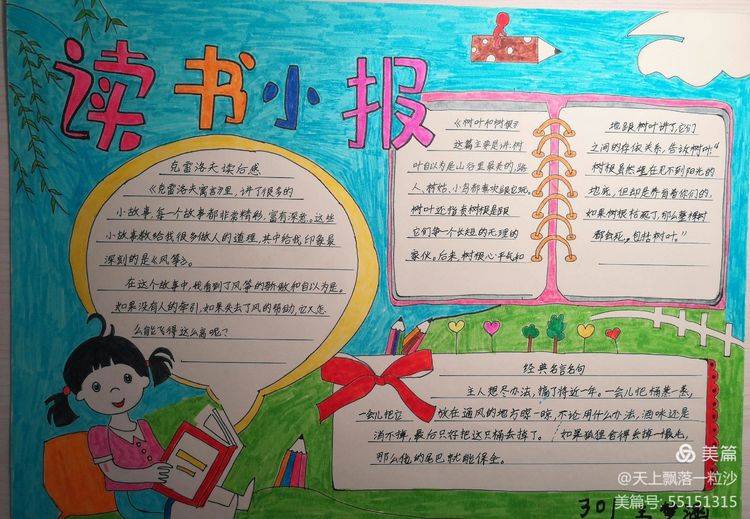 读书小报
克雷洛夫读后感
《克雷洛夫寓言》里,讲了很多的
小故事,每个故事都非常精彩,富有深意。这些
小故事教给我很多做人的道理,其中给我印象最
深刻的是《风筝》。
在这个故事中,我看到了风筝的骄傲和自以为是。
如果没有人的牵引,如果失去了风的帮助,它又怎
么能飞得这么高呢?
《树叶和树根》
这篇主要是讲:树
叶自以为是山谷里最美的,路
人,牧姑,小鸟都喜欢跟它玩。
树叶还指责树根是跟
它们争一个长短的无理的
家伙。后来,树根心平气和
地跟树叶讲了,它们
之间的存依关系,告诉树叶:“
树根虽然埋在见不到阳光的
地底,但却是养育着你们的,
如果树根枯死了,那么整棵树
都会死,包括树叶。”
经典名言名句
主人想尽办法,搞了将近一年。一会儿把桶熏一熏,
一会儿把它放在通风的地方晾一晾,不论用什么办法,酒味还是
消不掉,最后只好把这只桶丢掉了。如果狐狸舍得丢掉一撮毛,
那么他的尾巴就能保全。
301
美篇
@天上飘落一粒沙
美篇号:55151315